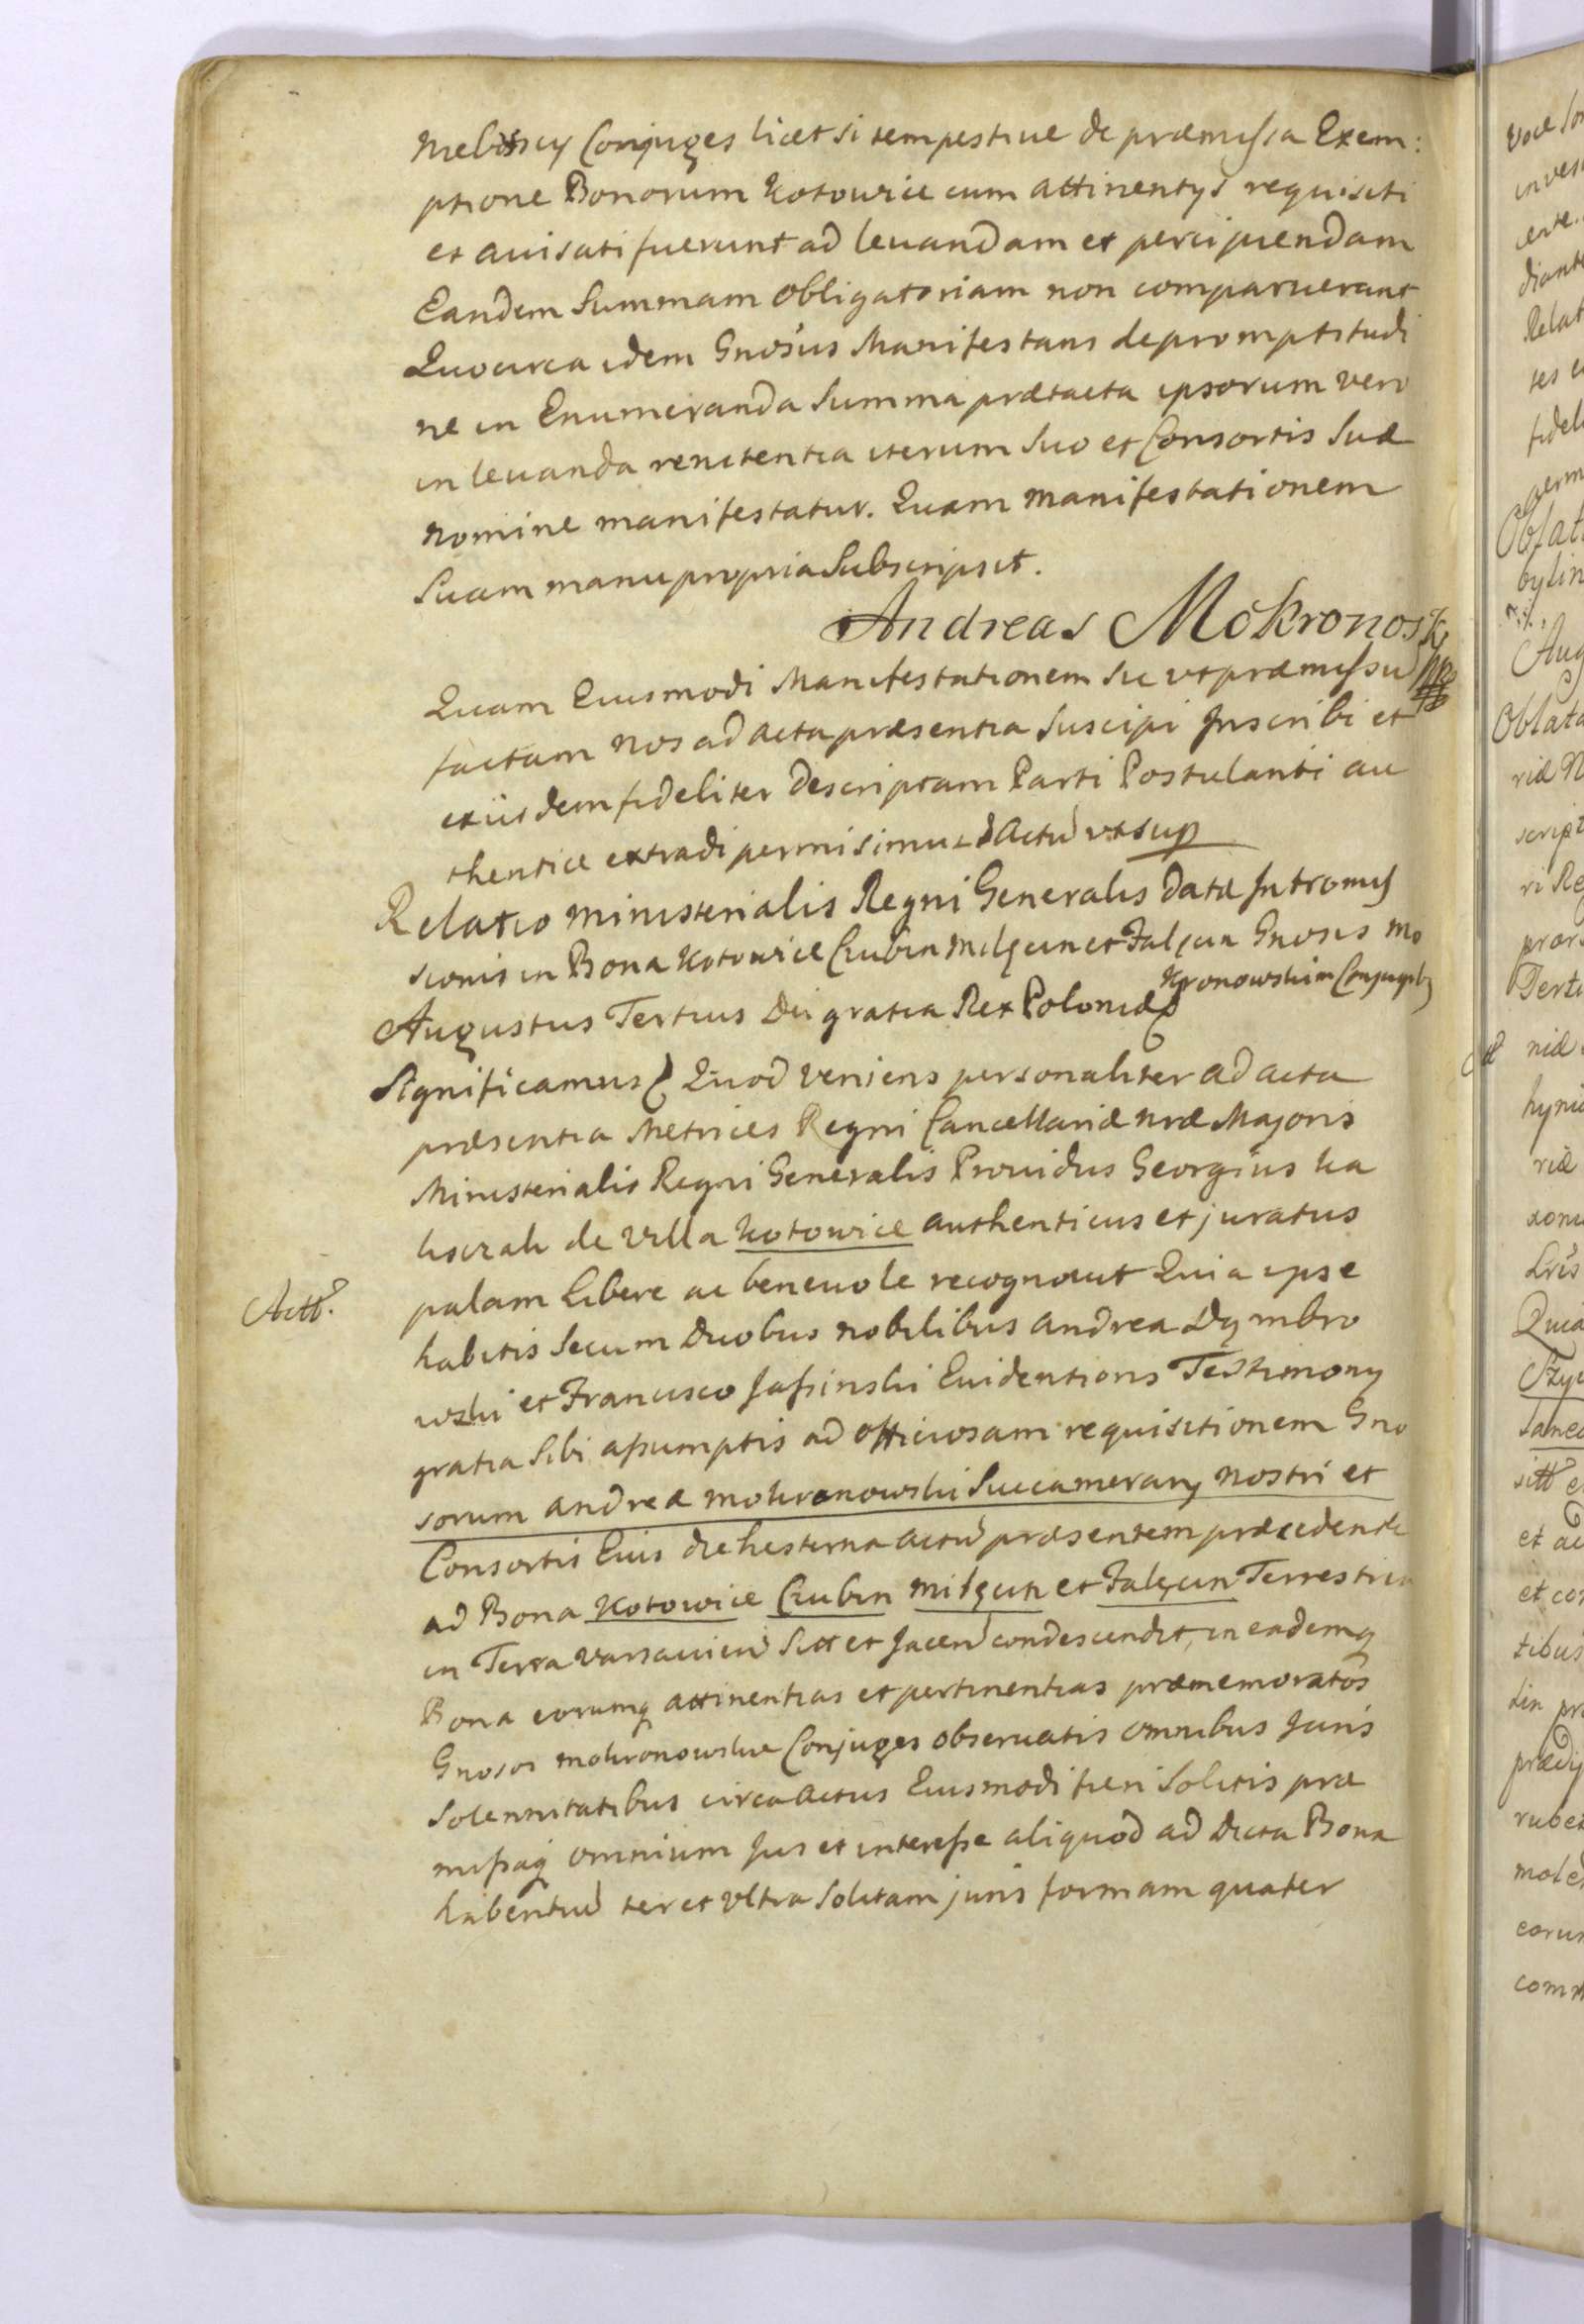 Conjuges licet si tempestive de præmissa Exem:
ptione Bonorum Kotowice cum attinentys requisiti
et avisati fuerunt ad levandam et percipiendam
Eandem Summam obligatoriam non comparuerunt
Quocirca idem Gnosus Manifestans de promptitudi
ne in Enumeranda Summa prætacta ipsorum vero
in levanda renitentia iterum suo et Consortis suæ
nomine manifestatur. Quam manifestationem
Suam manu propria Subscripsit.
Andreas Mokronoski
Quam Eiusmodi Manifestationem sic ut præmissu
factam nos ad acta præsentia Suscipi Inscribi et
ex iisdem fideliter descriptam Parti Postulanti au
thentice extradi permisimus Actū ut sup
Relatio ministerialis Regni Generalis datæ Intromis
sionis in Bona Kotowice Czubin Milęcin et Falęcin Gnosis Mo
kronowskim Conjugib9
Augustus Tertius Dei gratia Rex Poloniæ
Significamus Quod veniens personaliter ad acta
præsentia Metrices Regni Cancellariæ nræ Majoris
Ministerialis Regni Generalis Providus Georgius Ka
de Villa Kotowice authenticus et juratus
Actt.
palam libere ac benevole recognovit Quia ipse
habitis secum duobus nobilibus Andrea Dymbro
wski et Francisco Jasinski Evidentioris Testimony
gratia sibi assumptis ad officiosam requisitionem Gno
sorum Andreæ Mokronowski Succamerary nostri et
Consortis Eius die hesterna actū præsentem præcedente
ad Bona Kotowice Czubin Milęcin et Falęcin Terrestria
in Terra Varsavien Sitt et Jacen condescendit, in eademq
Bona eorumq attinentias et pertinentias præmemoratos
Gnosos Mokronowskie Conjuges observatis omnibus Juris
Solennitatibus circa actus Eiusmodi fieri solitis præ
missaq omnium Jus et interesse aliquod ad dicta Bona
habentiū ter et ultra solitam juris formam quater